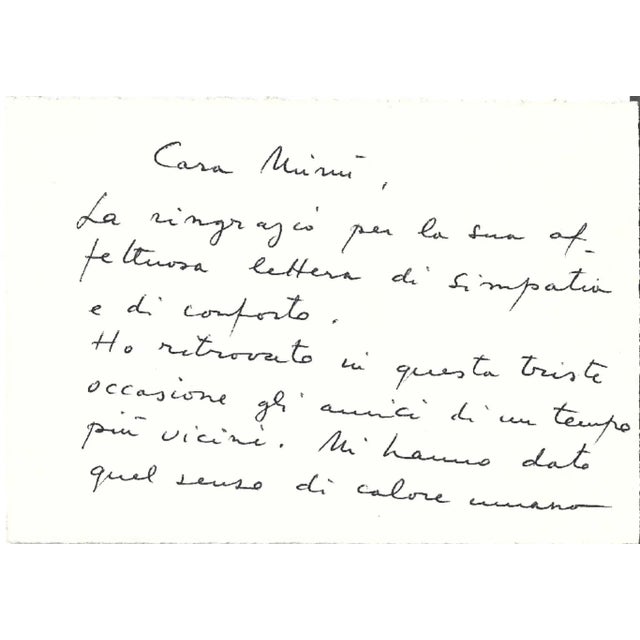 Cara Mimì,
La ringrazio per la sua af-
fettuosa lettera di simpatia
e di conforto.
Ho ritrovato in questa triste
occasione gli amici di un tempo
più vicini. Mi hanno dato
quel senso di calore umano